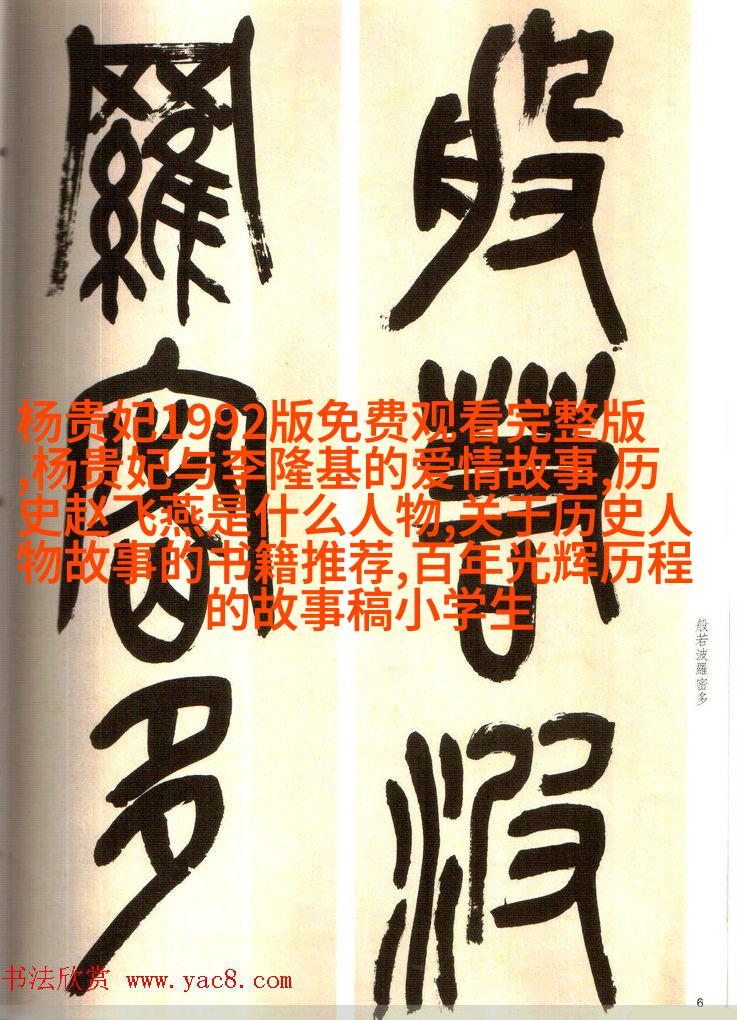 般若波
羅密多
杨贵妃1992版免费观看完整版
,杨贵妃与李隆基的爱情故事,历
史赵飞燕是什么人物,关于历史人
物故事的书籍推荐,百年光辉历程
的故事稿小学生
般若波羅密多
书法欣赏 www.yac8.com
6